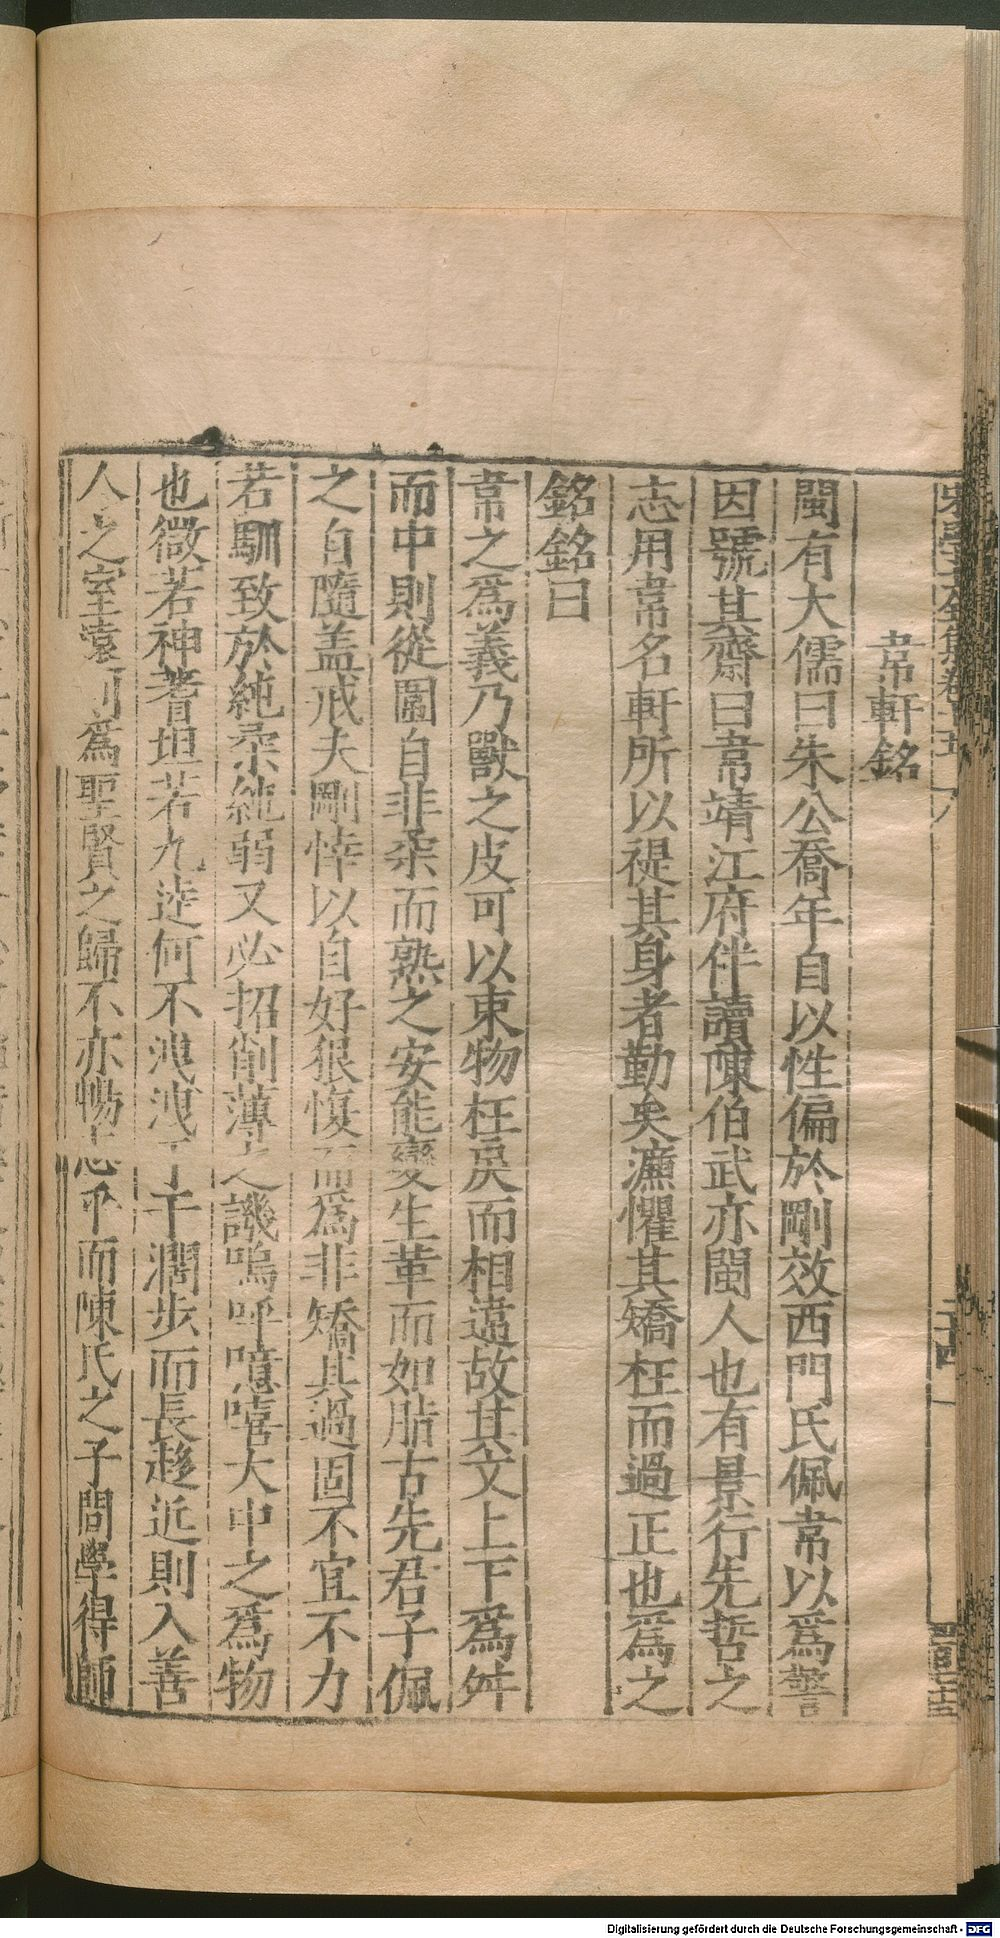 韋軒銘
閩有大儒曰朱公喬年自以性偏於剛效西門氏佩韋以爲警
因號其齋曰韋靖江府伴讀陳伯武亦閩人也有景行先哲之
志用韋名軒所以禔其身者勤矣濂懼其矯枉而過正也爲之
銘銘曰
韋之爲義乃獸之皮可以束物枉戾而相違故其文上下爲舛
而中則從囗自非柔而熟之安能變生革而如脂古先君子佩
之自隨盖戒夫剛悻以自好狠愎而爲非矯其過固不宜不力
若馴致於純柔純弱又必招削薄之譏嗚呼噫嘻大中之爲物
也微若神蓍坦若九逵何不洩洩于于濶步而長趍近則入善
人之室遠則爲聖賢之歸不亦暢志乎而陳氏之子問學得師
二十四
Digitalisierung gefördert durch die Deutsche Forschungsgemeinschaft - DFG